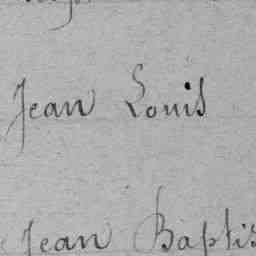 Jean Louis
Jean Baptis